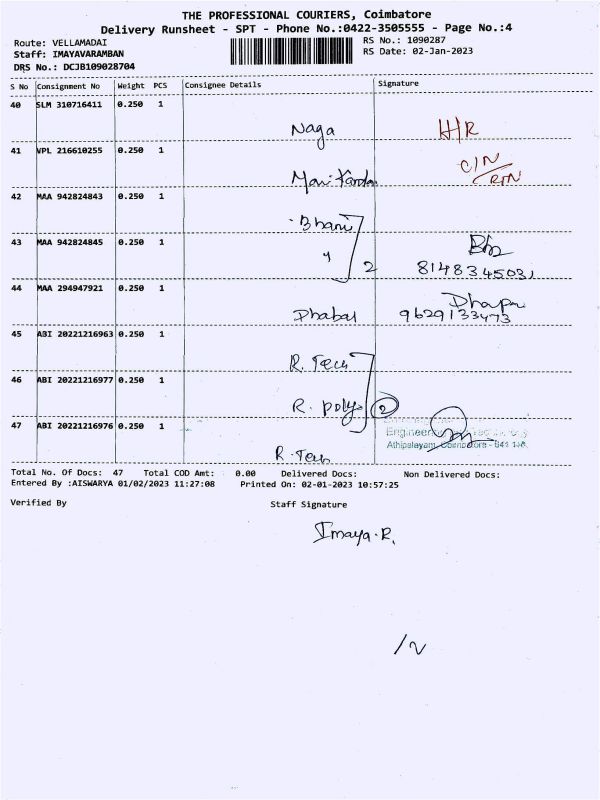 THE PROFESSIONAL COURIERS, Coimbatore
Delivery Runsheet - SPT - Phone No.:0422-3505555 - Page No.:4
Route: VELLAMADAI
RS No.: 1090287
Staff: IMAYAVARAMBAN
RS Date: 02-Jan-2023
DRS No.: DCJB109028704
S No Consignment No Weight PCS Consignee Details Signature
40 SLM 310716411 0.250 1
Naga H/R
41 VPL 216610255 0.250 1
C/N
Mani RTN
42 MAA 942824843 0.250 1
Bhani
43 MAA 942824845 0.250 1
" 2 8148345031
44 MAA 294947921 0.250 1
Dhabal 9629133473
45 ABI 20221216963 0.250 1
R. Tech
46 ABI 20221216977 0.250 1
R. poly 2
47 ABI 20221216976 0.250 1
Athipalayam, Coimbatore - 641 110.
R. Tech
Total No. Of Docs: 47 Total COD Amt: 0.00 Delivered Docs: Non Delivered Docs:
Entered By :AISWARYA 01/02/2023 11:27:08 Printed On: 02-01-2023 10:57:25
Verified By Staff Signature
Imaya.R.